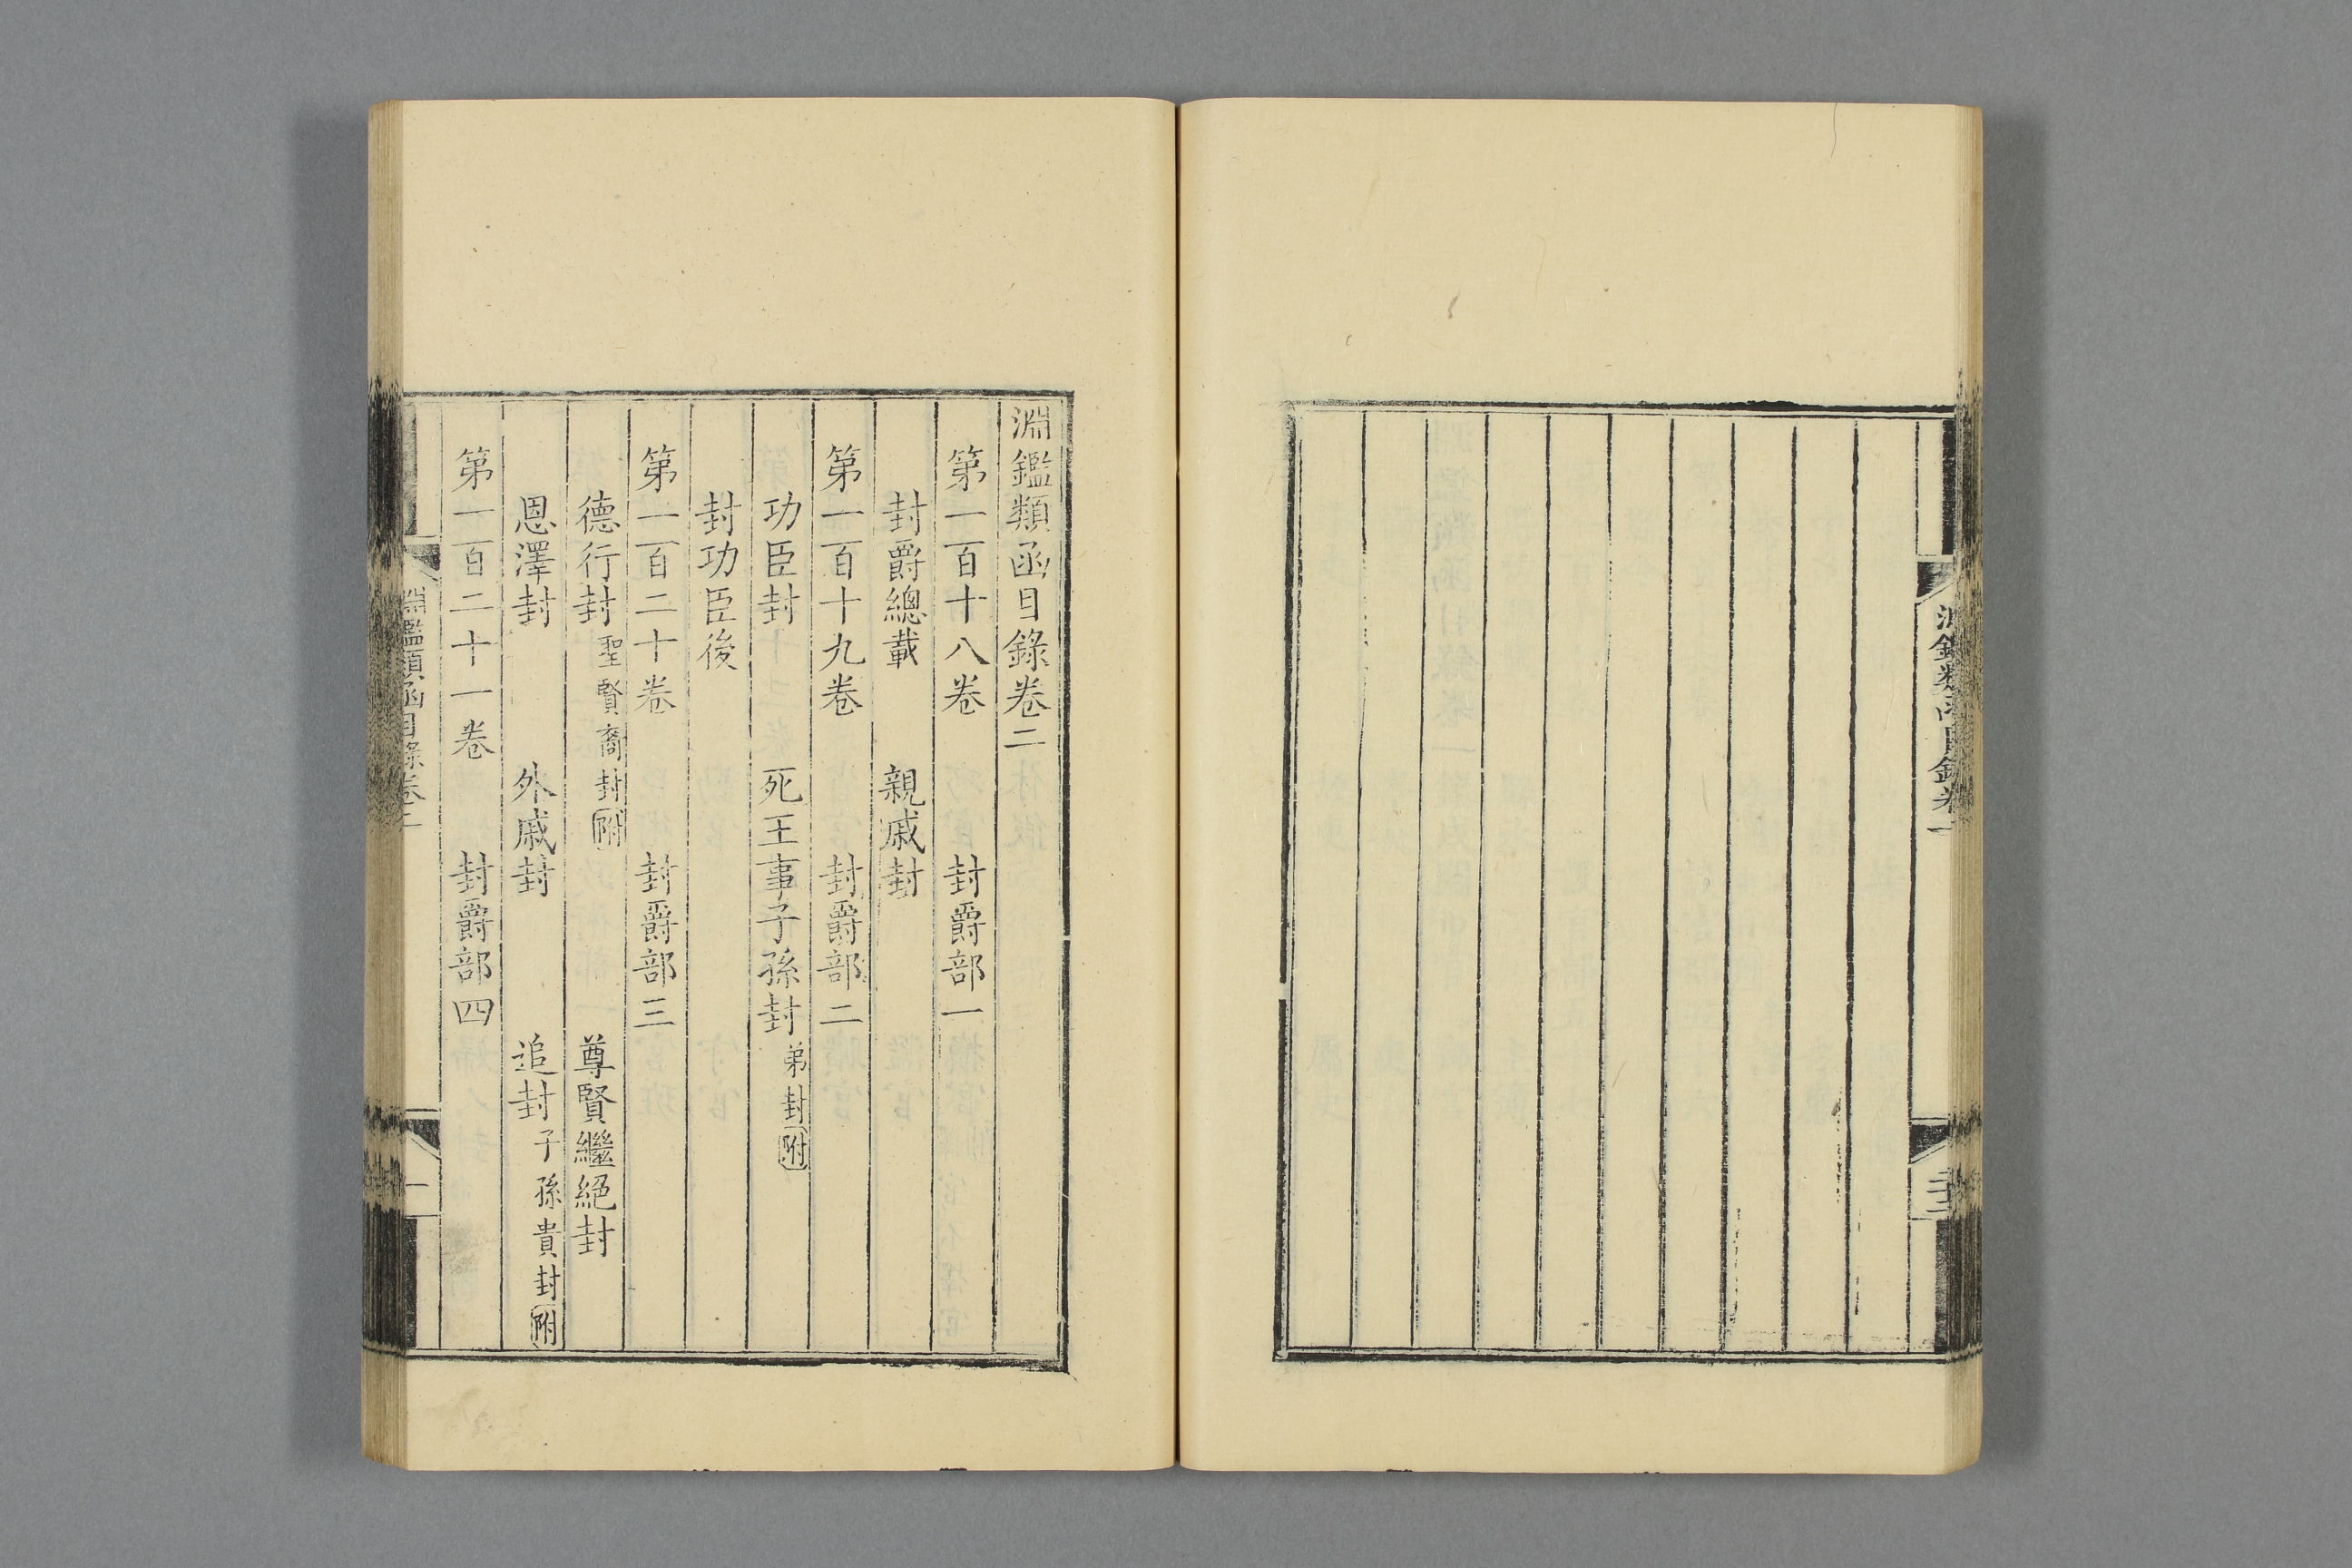 淵鑑類函目錄卷一
淵鑑類函目錄卷二
第一百十八卷 封爵部一
封爵總載 親戚封
第一百十九卷 封爵部二
功臣封 死王事子孫封 弟封附
封功臣後
第一百二十卷 封爵部三
德行封 聖賢裔封附 尊賢繼絕封
恩澤封 外戚封 追封 子孫貴封附
第一百二十一卷 封爵部四
淵鑑類函目錄卷二
一